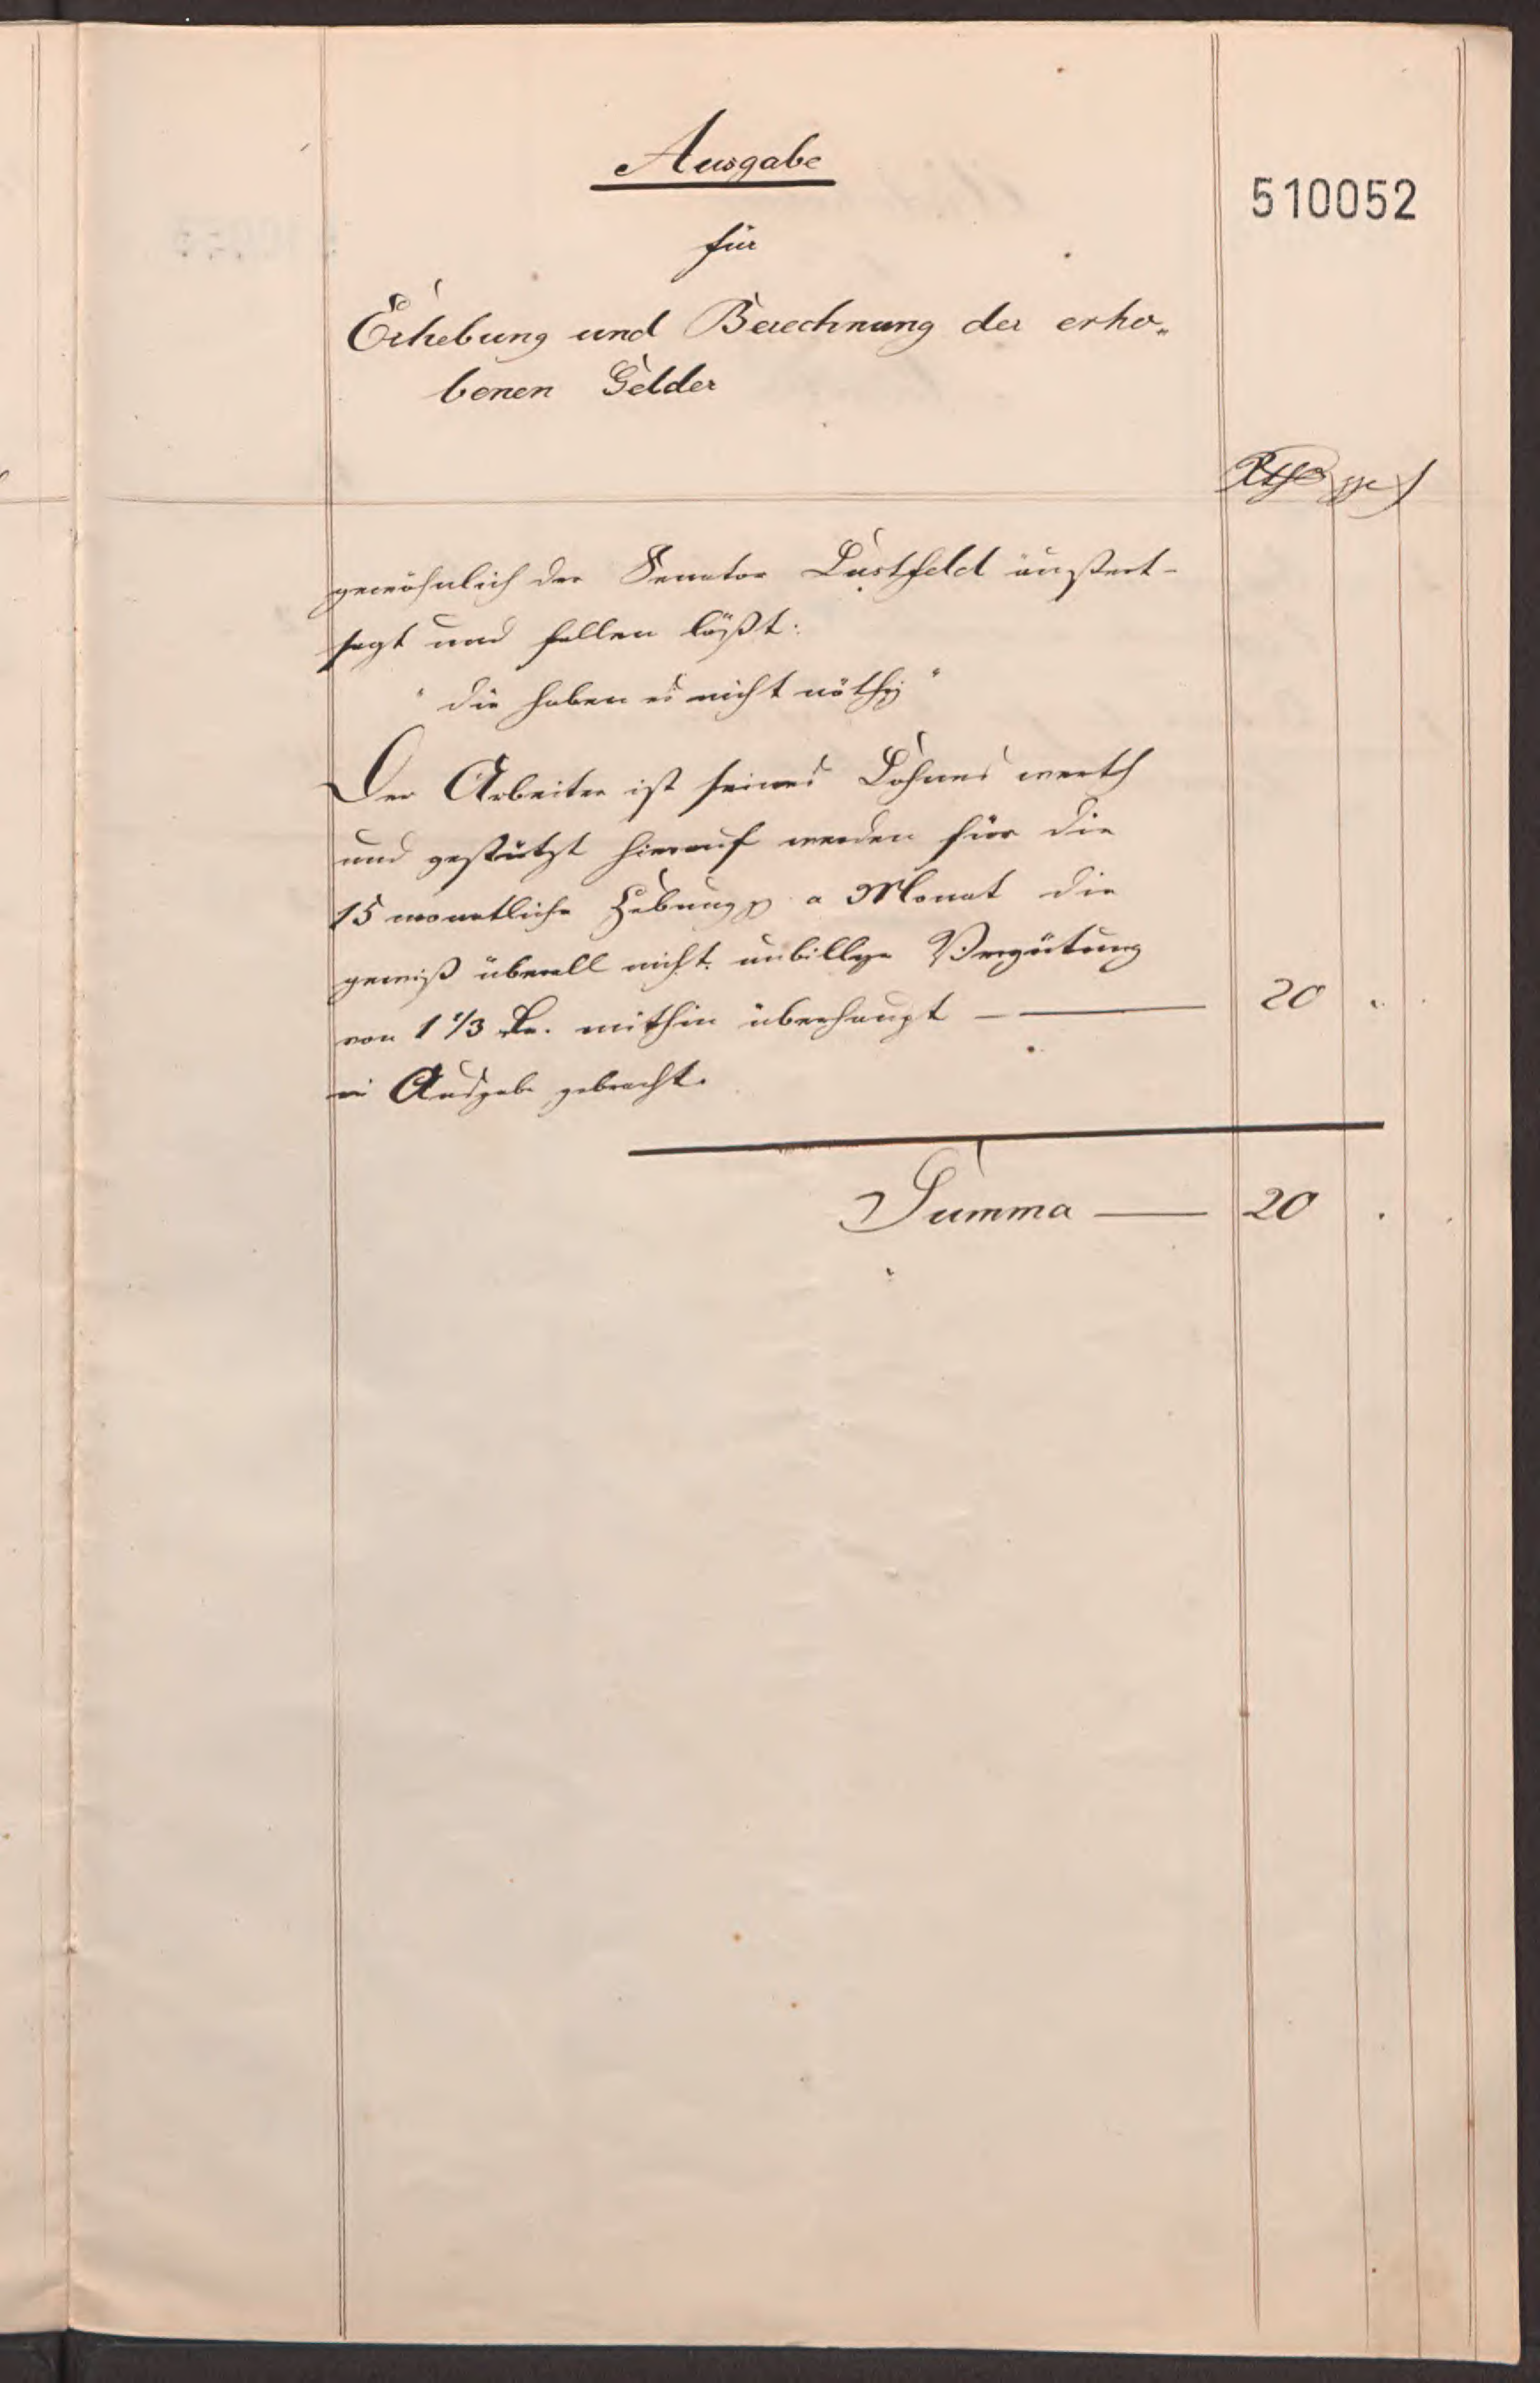 Ausgabe
510052
für
Erhebung und Berechnung der erho„
benen Gelder
Rthr ggr
gewöhnlich der Senator Lustfeld äußert -
sagt und fallen läßt:
" die haben es nicht nöthig "
Der Arbeiter ist seines Lohnes werth
und gestützt hierauf werden für die
15 monatliche Hebung a Monat die
gewiß überall nicht unbillige Vergütung
von 1 1/3 mithin überhaupt — 20 „
in Ausgabe gebracht.
Summa — 20 .